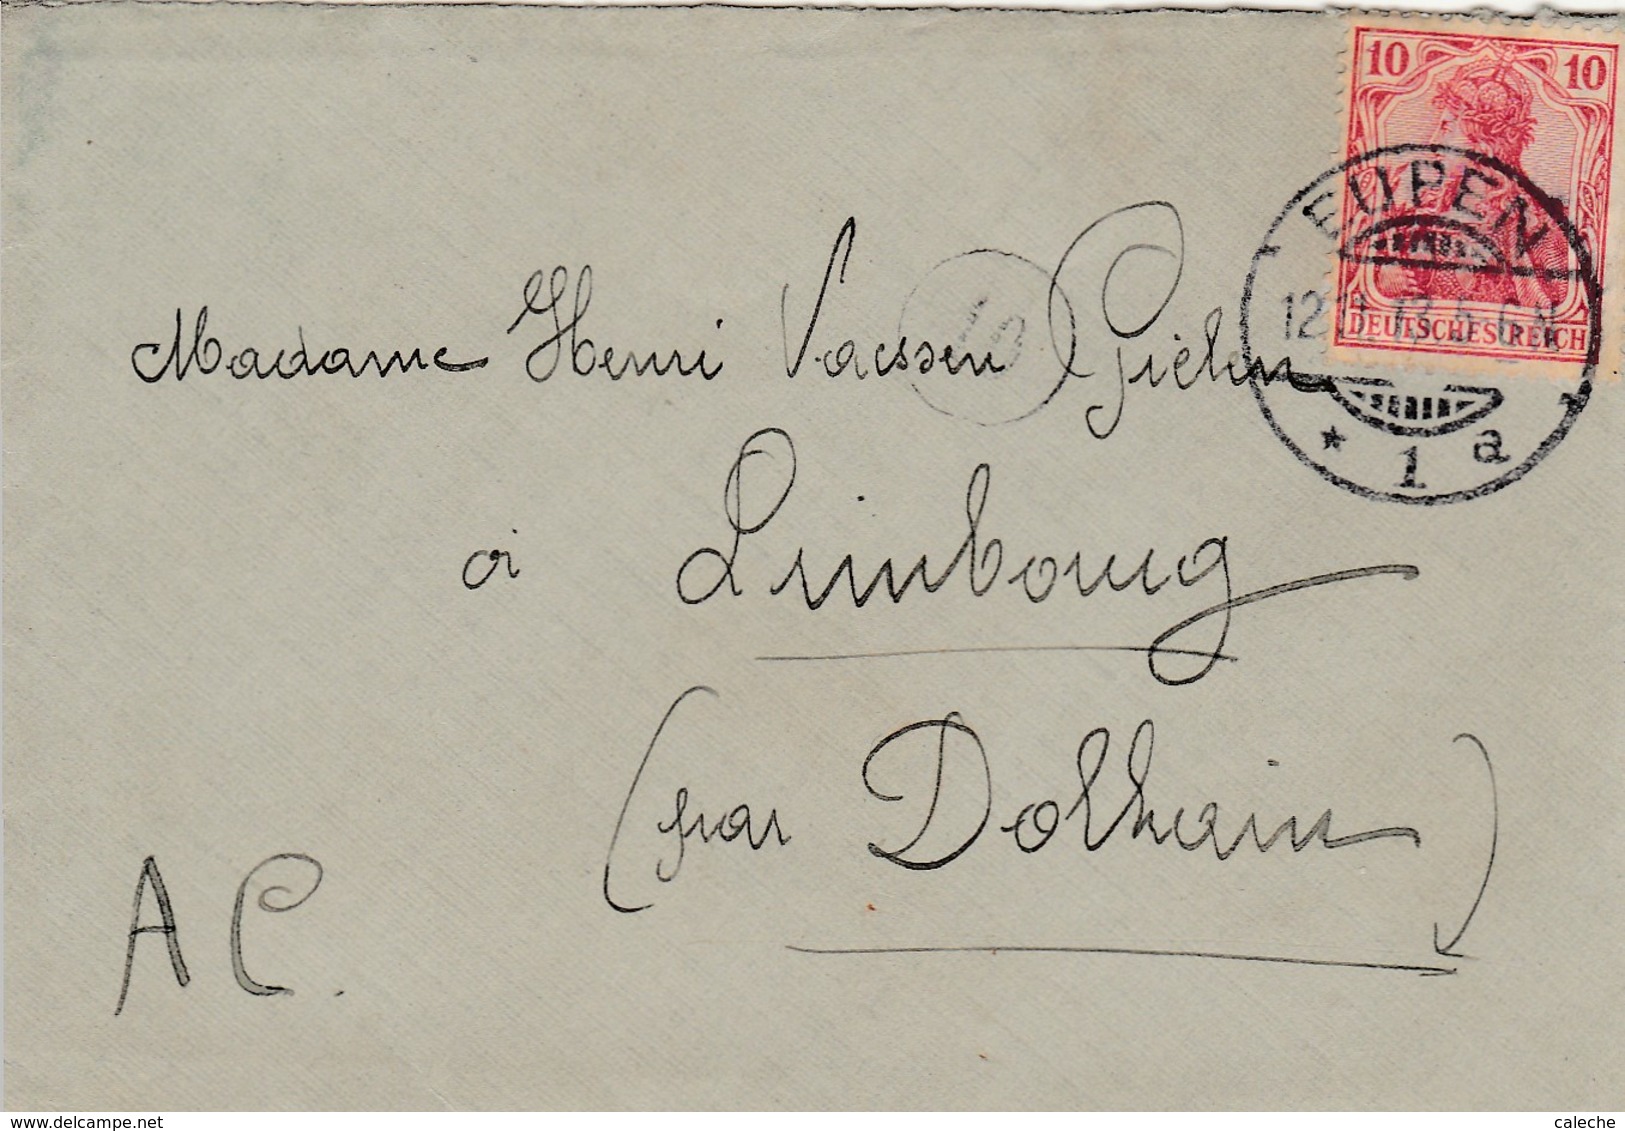 10 10
DEUTSCHES REICH
EUPEN
12.11.13.5-6N
* 1 a
Madame Henri Vaessen Pielen
à Limbourg
(par Dolhain)
A C.
delcampe.net
caleche